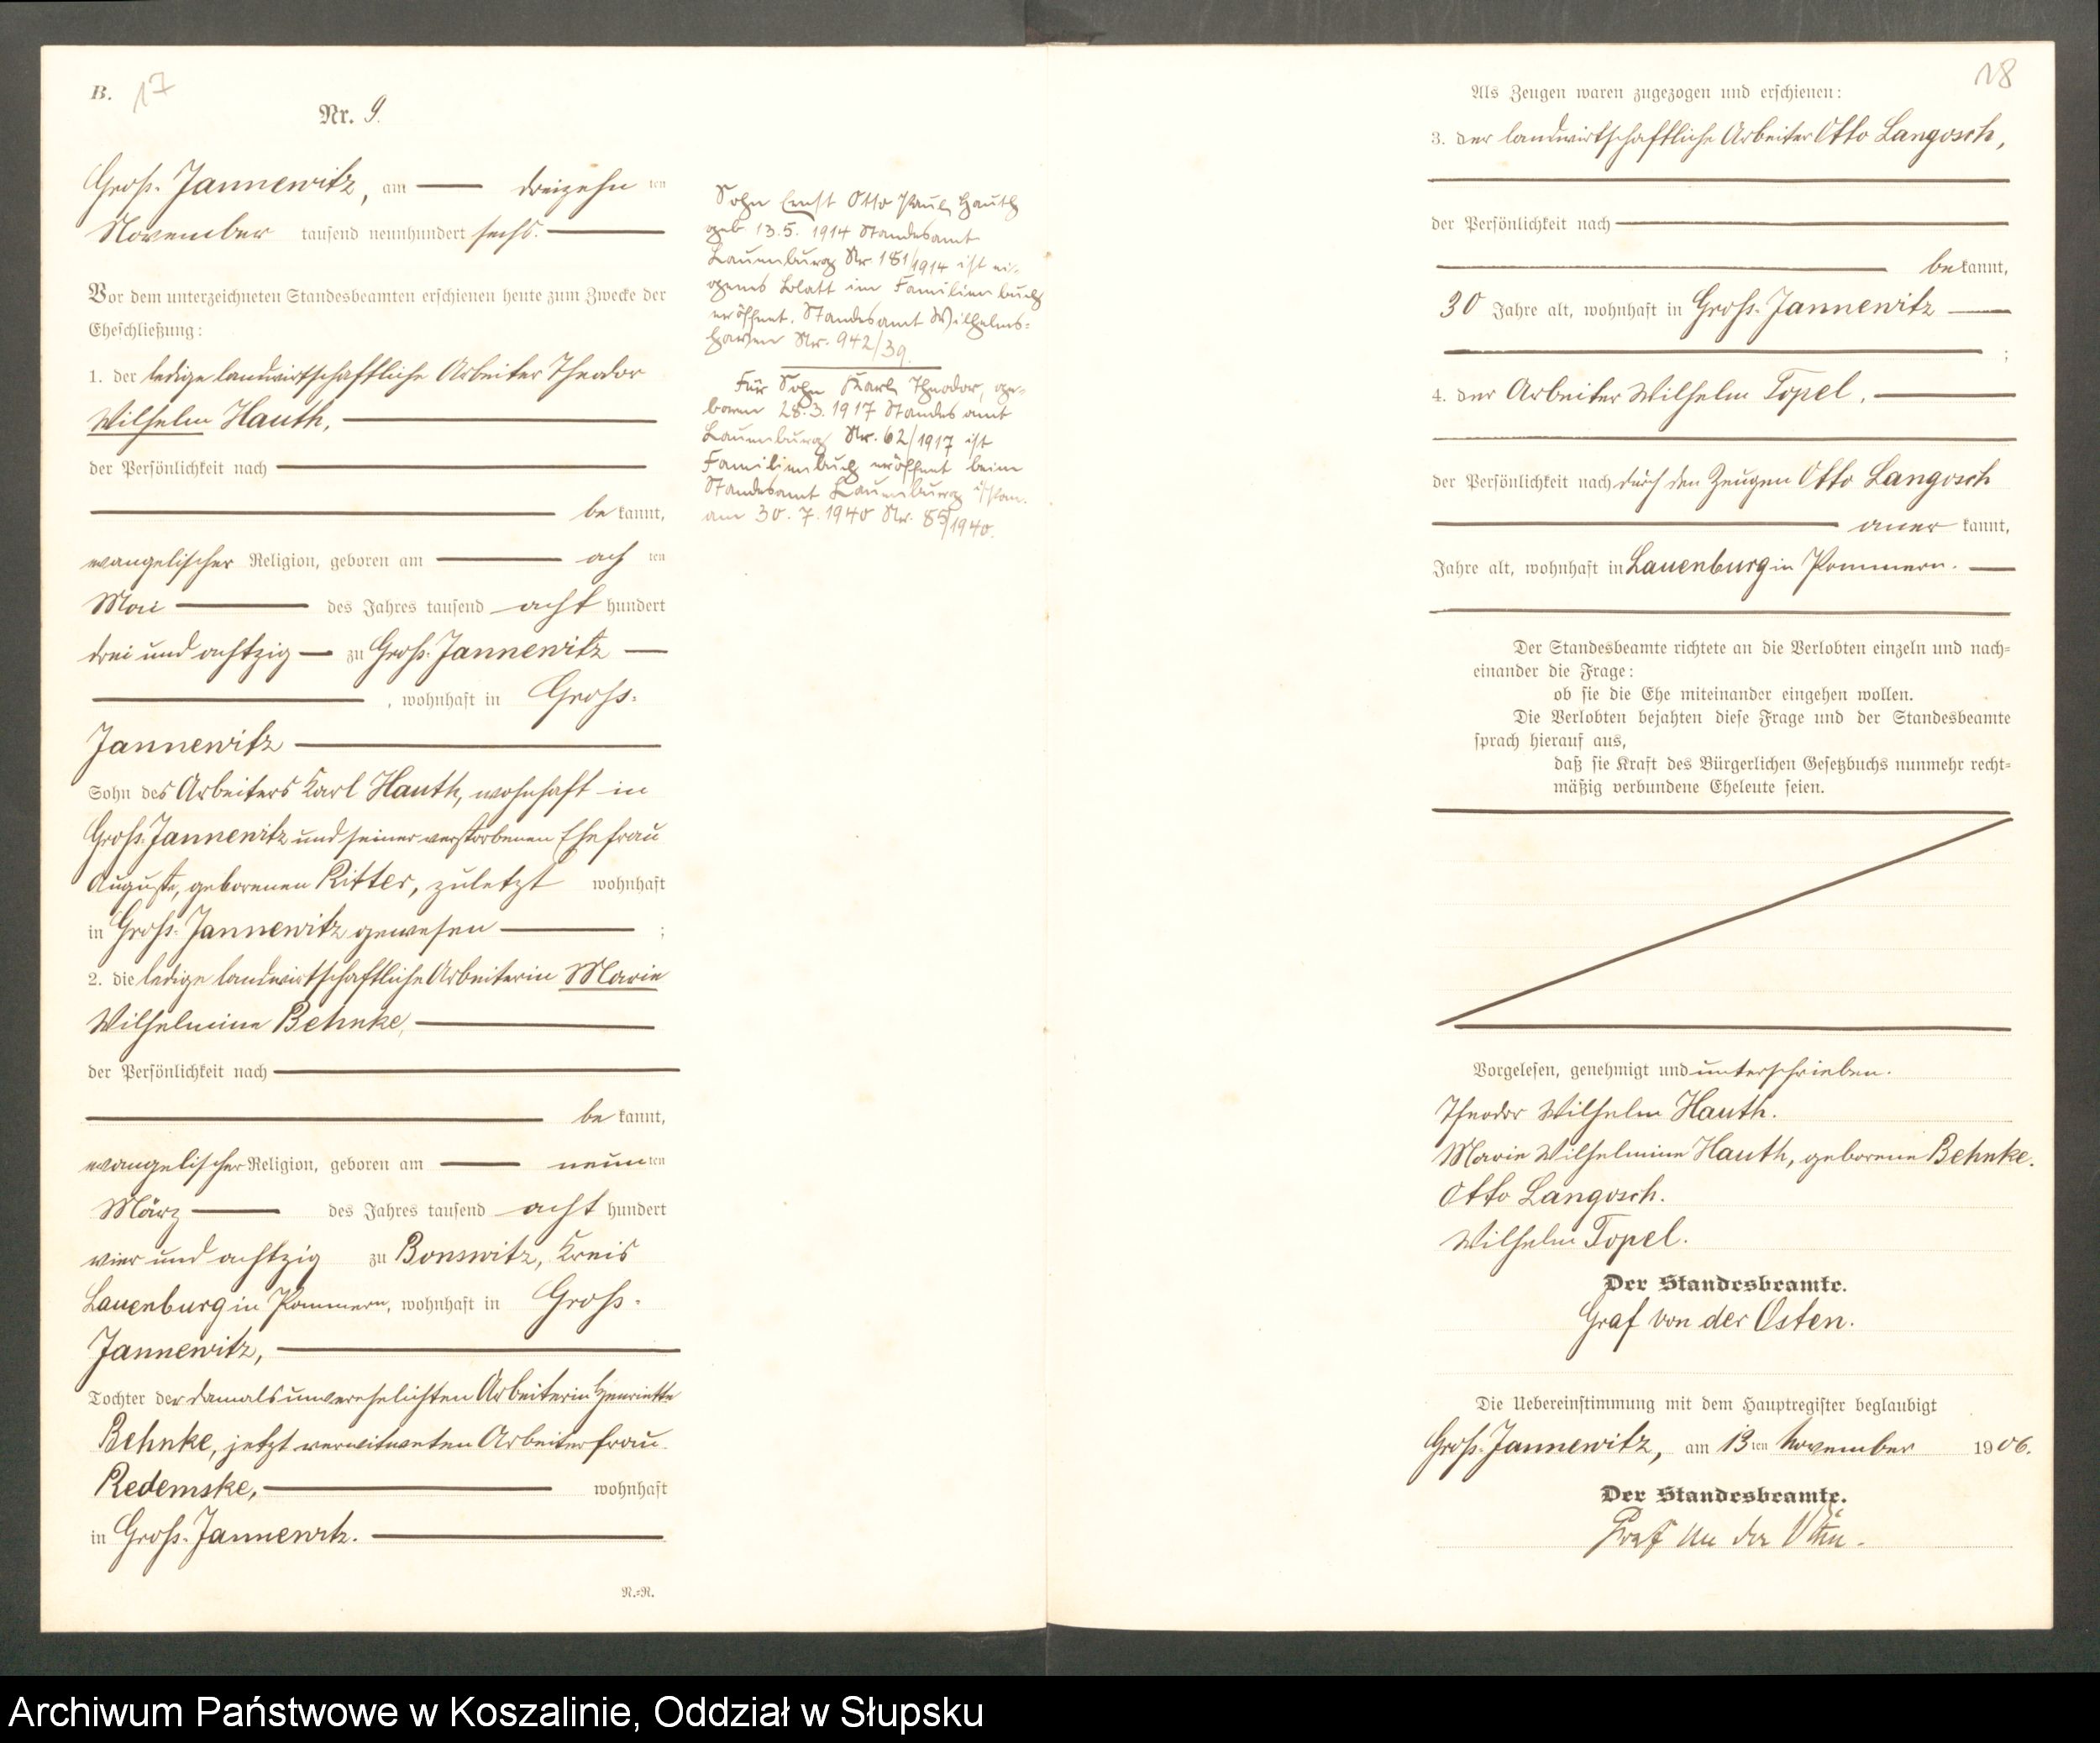 B. 17
Nr. 9.
Groß-Jannewitz, am dreizehn ten
November tausend neunhundert sechs.
Vor dem unterzeichneten Standesbeamten erschienen heute zum Zwecke der
Eheschließung:
1. der ledige landwirtschaftliche Arbeiter Theodor
Wilhelm Hauth,
der Persönlichkeit nach
be kannt,
evangelischer Religion, geboren am ach ten
Mai des Jahres tausend acht hundert
drei und achtzig zu Groß-Jannewitz
, wohnhaft in Groß-
Jannewitz
Sohn des Arbeiters Karl Hauth, wohnhaft in
Groß-Jannewitz und seiner verstorbenen Ehefrau
Auguste, geborenen Ritter, zuletzt wohnhaft
in Groß-Jannewitz gewesen ;
2. die ledige landwirtschaftliche Arbeiterin Marie
Wilhelmine Behnke,
der Persönlichkeit nach
be kannt,
evangelischer Religion, geboren am neun ten
März des Jahres tausend acht hundert
vier und achtzig zu Bonswitz, Kreis
Lauenburg in Pommern, wohnhaft in Groß-
Jannewitz,
Tochter der damals unverehelichten Arbeiterin Henriette
Behnke, jetzt verwitweten Arbeiterfrau
Redemske, wohnhaft
in Groß-Jannewitz.
N.=R.
Sohn Ernst Otto Paul Hauth
geb 13.5. 1914 Standesamt
Lauenburg Nr 181/1914 ist ei-
genes Blatt im Familienbuch
eröffnet. Standesamt Wilhelms-
haven Nr. 942/39.
Für Sohn Karl Theodor, ge-
boren 28.3.1917 Standesamt
Lauenburg Nr. 62/1917 ist
Familienbuch eröffnet beim
Standesamt Lauenburg i/Pom.
am 30.7.1940 Nr. 85/1940.
18
Als Zeugen waren zugezogen und erschienen:
3. der landwirtschaftliche Arbeiter Otto Langosch,
der Persönlichkeit nach
be kannt,
30 Jahre alt, wohnhaft in Groß-Jannewitz
;
4. der Arbeiter Wilhelm Topel,
der Persönlichkeit nach durch den Zeugen Otto Langosch
aner kannt,
Jahre alt, wohnhaft in Lauenburg in Pommern.
Der Standesbeamte richtete an die Verlobten einzeln und nach=
einander die Frage:
ob sie die Ehe miteinander eingehen wollen.
Die Verlobten bejahten diese Frage und der Standesbeamte
sprach hierauf aus,
daß sie Kraft des Bürgerlichen Gesetzbuchs nunmehr recht=
mäßig verbundene Eheleute seien.
Vorgelesen, genehmigt und unterschrieben.
Theodor Wilhelm Hauth.
Marie Wilhelmine Hauth, geborene Behnke.
Otto Langosch.
Wilhelm Topel.
Der Standesbeamte.
Graf von der Osten.
Die Uebereinstimmung mit dem Hauptregister beglaubigt
Groß-Jannewitz, am 13 ten November 1906.
Der Standesbeamte.
Graf von der Osten.
Archiwum Państwowe w Koszalinie, Oddział w Słupsku